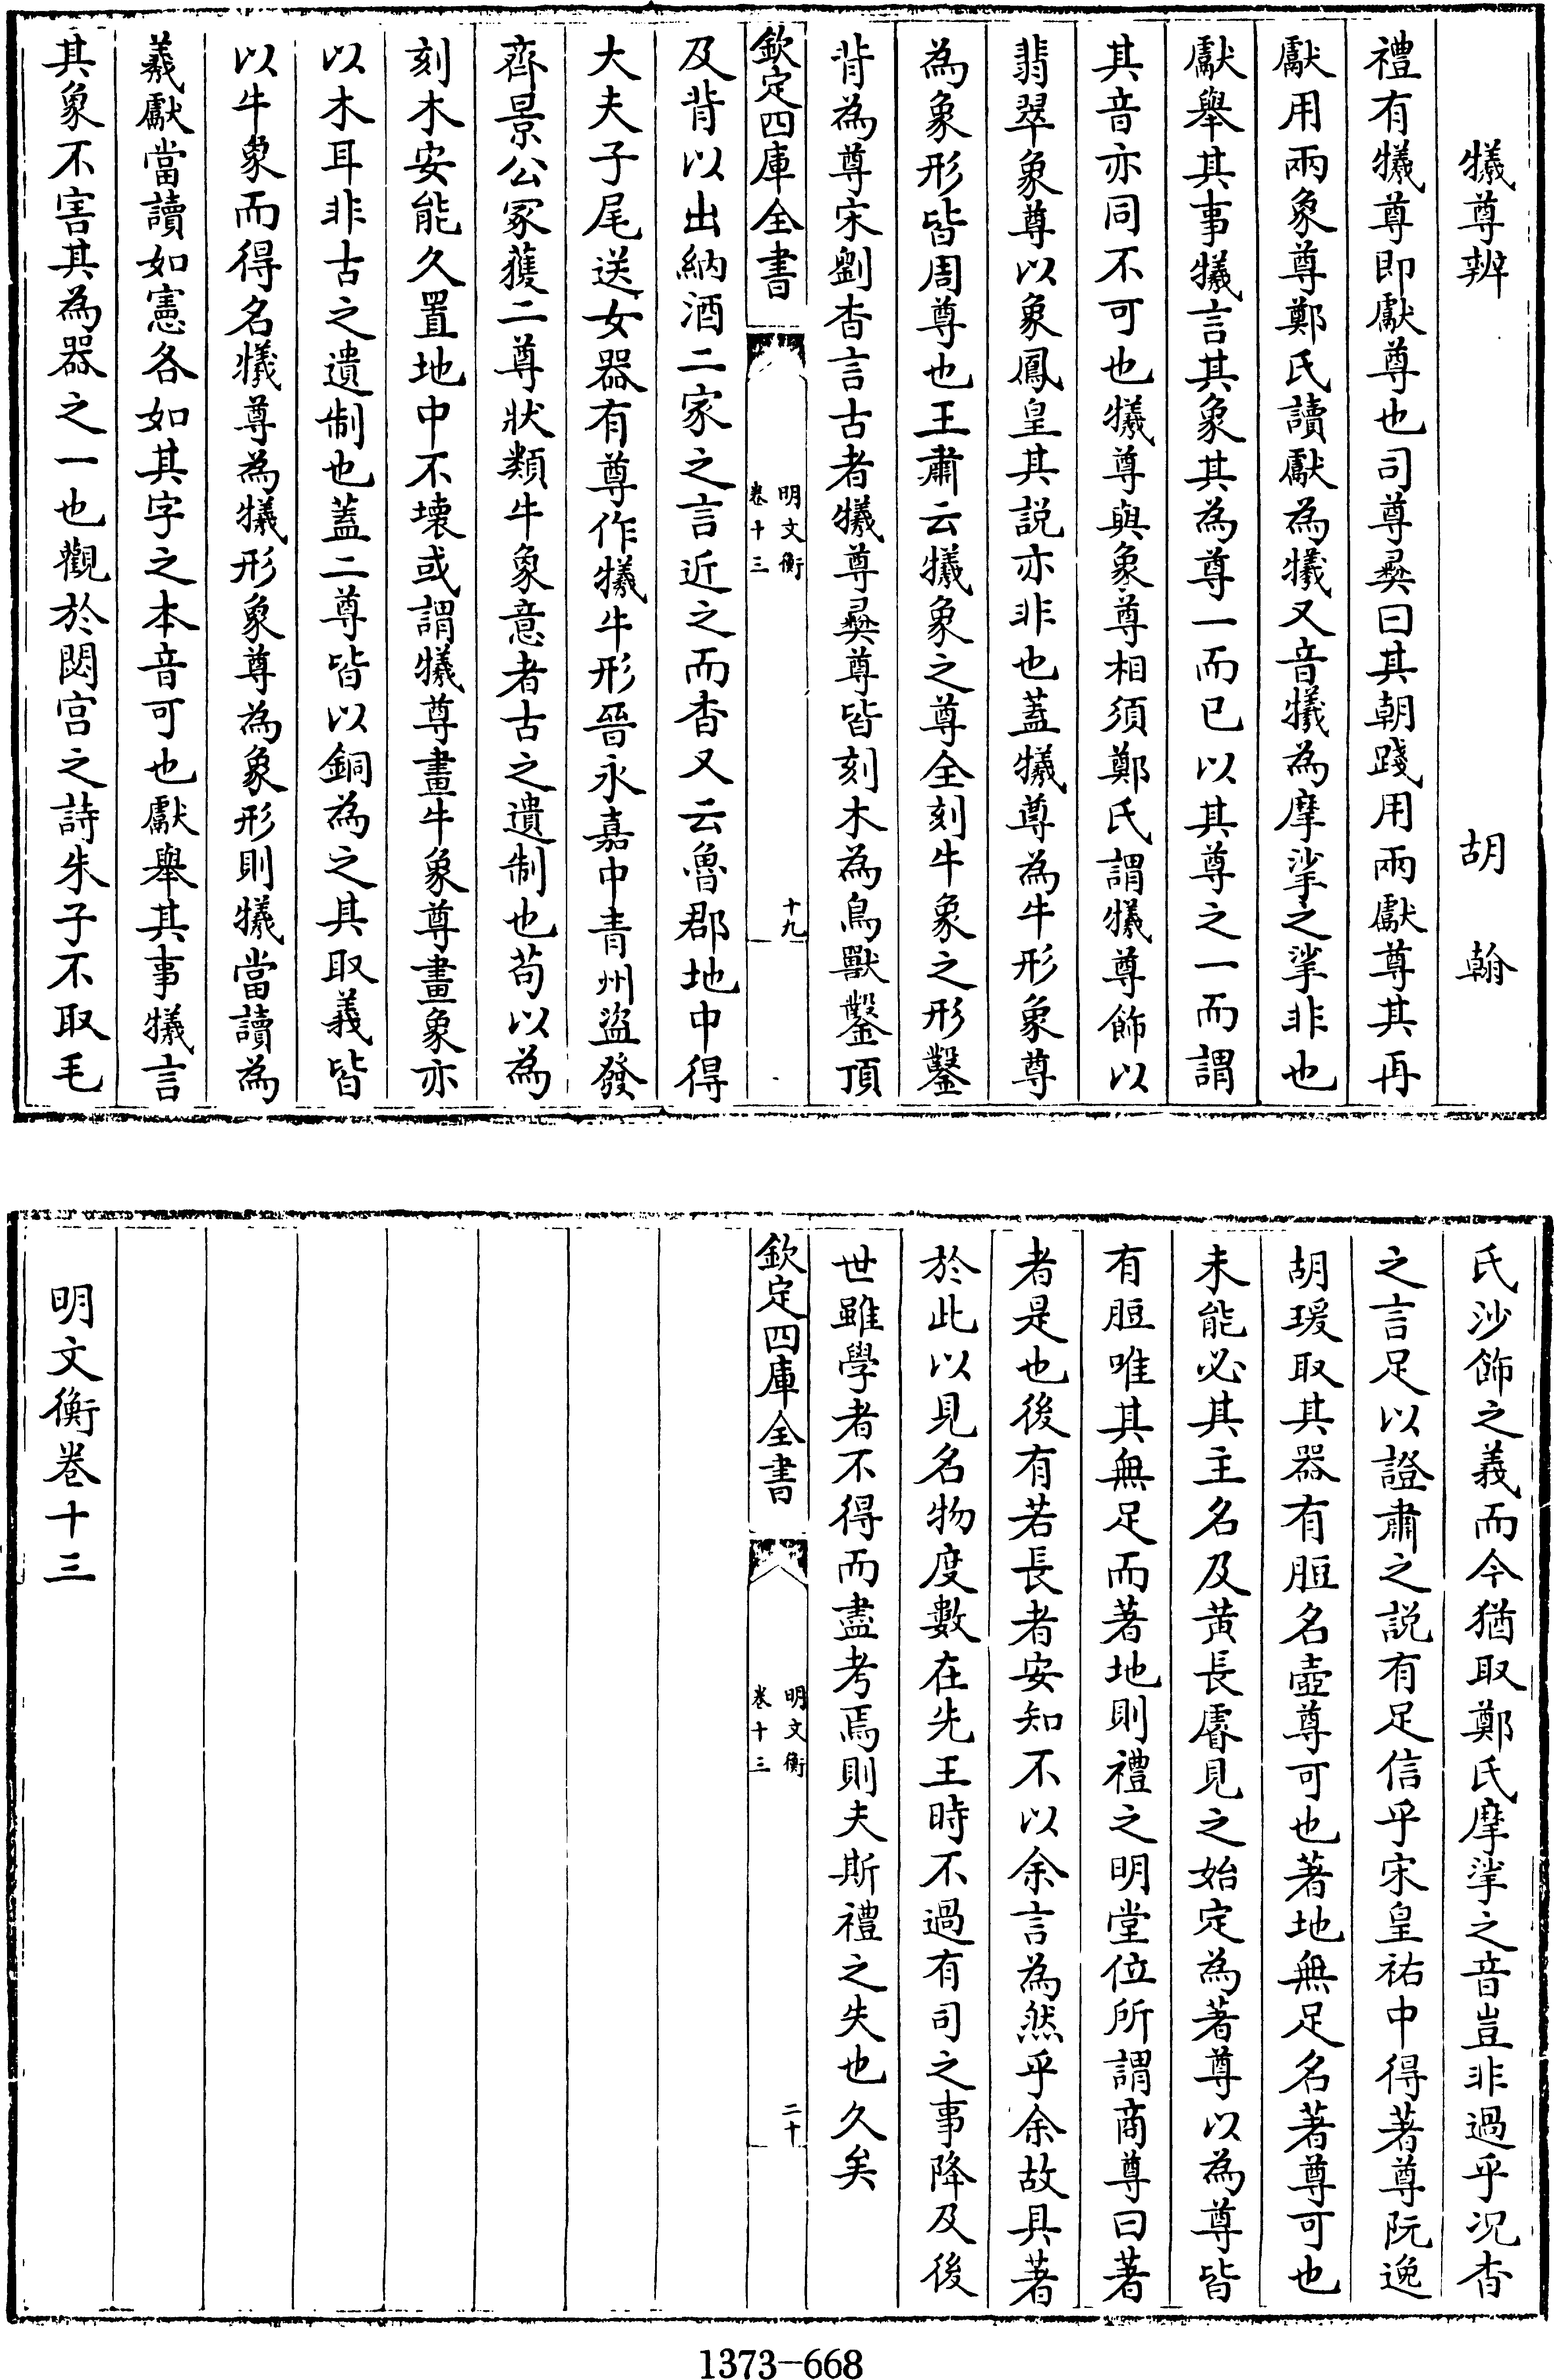 犧尊辨　胡翰
禮有犧尊即獻尊也司尊彛曰其朝踐用兩獻尊其再
獻用兩象尊鄭氏讀獻為犧又音犧為摩挲之挲非也
獻舉其事犧言其象其為尊一而已以其尊之一而謂
其音亦同不可也犧尊與象尊相須鄭氏謂犧尊飾以
翡翠象尊以象鳳皇其説亦非也蓋犧尊為牛形象尊
為象形皆周尊也王肅云犧象之尊全刻牛象之形鑿
背為尊宋劉杳言古者犧尊彛尊皆刻木為鳥獸鑿頂
欽定四庫全書
明文衡
卷十三
十九
及背以出納酒二家之言近之而杳又云魯郡地中得
大夫子尾送女器有尊作犧牛形晉永嘉中青州盜發
齊景公冢獲二尊狀類牛象意者古之遺制也茍以為
刻木安能久置地中不壊或謂犧尊畫牛象尊畫象亦
以木耳非古之遺制也蓋二尊皆以銅為之其取義皆
以牛象而得名犧尊為犧形象尊為象形則犧當讀為
羲獻當讀如憲各如其字之本音可也獻舉其事犧言
其象不害其為器之一也觀於閟宫之詩朱子不取毛
氏沙飾之義而今猶取鄭氏摩挲之音豈非過乎况杳
之言足以證肅之説有足信乎宋皇祐中得著尊阮逸
胡瑗取其器有脰名壺尊可也著地無足名著尊可也
未能必其主名及黄長睿見之始定為著尊以為尊皆
有脰唯其無足而著地則禮之明堂位所謂商尊曰著
者是也後有若長者安知不以余言為然乎余故具著
於此以見名物度數在先王時不過有司之事降及後
世雖學者不得而盡考焉則夫斯禮之失也久矣
欽定四庫全書
明文衡
卷十三
二十
明文衡卷十三
1373-668